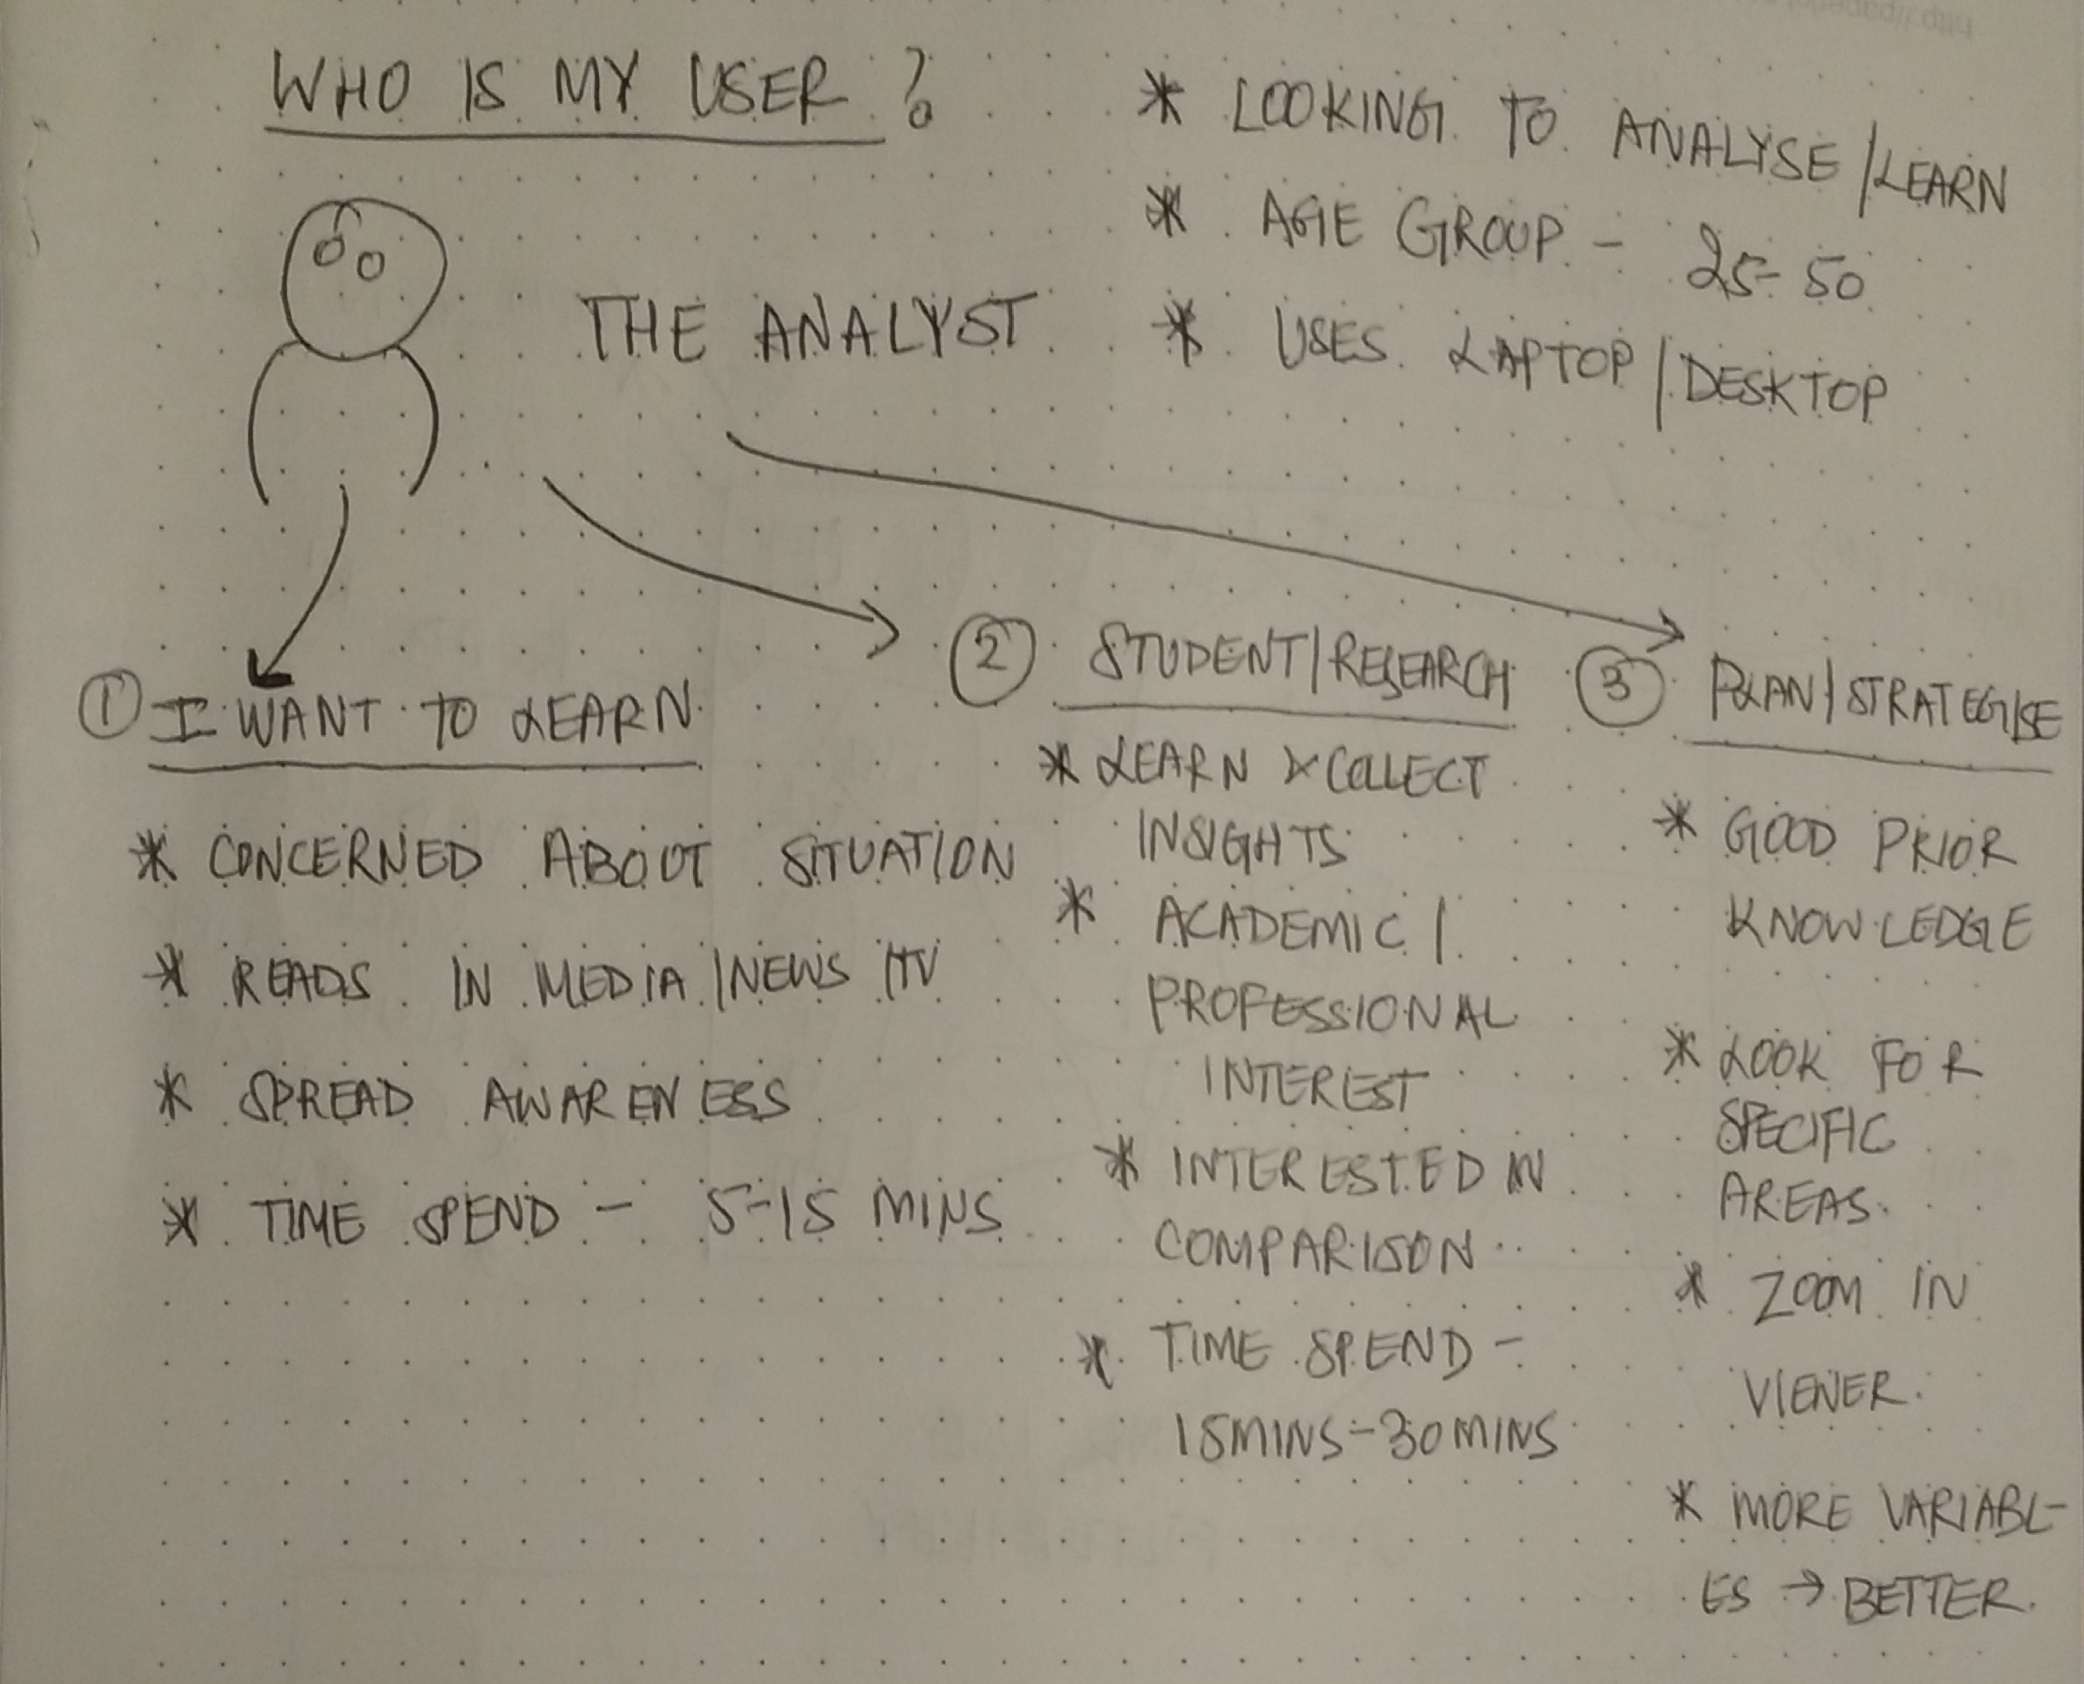 WHO IS MY USER ?
THE ANALYST
* LOOKING TO ANALYSE/LEARN
* AGE GROUP - 25-50
* USES LAPTOP/DESKTOP
① I WANT TO LEARN
* CONCERNED ABOUT SITUATION
* READS IN MEDIA/NEWS/TV
* SPREAD AWARENESS
* TIME SPEND - 5-15 MINS
② STUDENT/RESEARCH
* LEARN & COLLECT
INSIGHTS
* ACADEMIC/
PROFESSIONAL
INTEREST
* INTERESTED IN
COMPARISON
* TIME SPEND -
15MINS-30MINS
③ PLAN/STRATEGISE
* GOOD PRIOR
KNOWLEDGE
* LOOK FOR
SPECIFIC
AREAS.
* ZOOM IN
VIEWER.
* MORE VARIABL-
ES → BETTER.